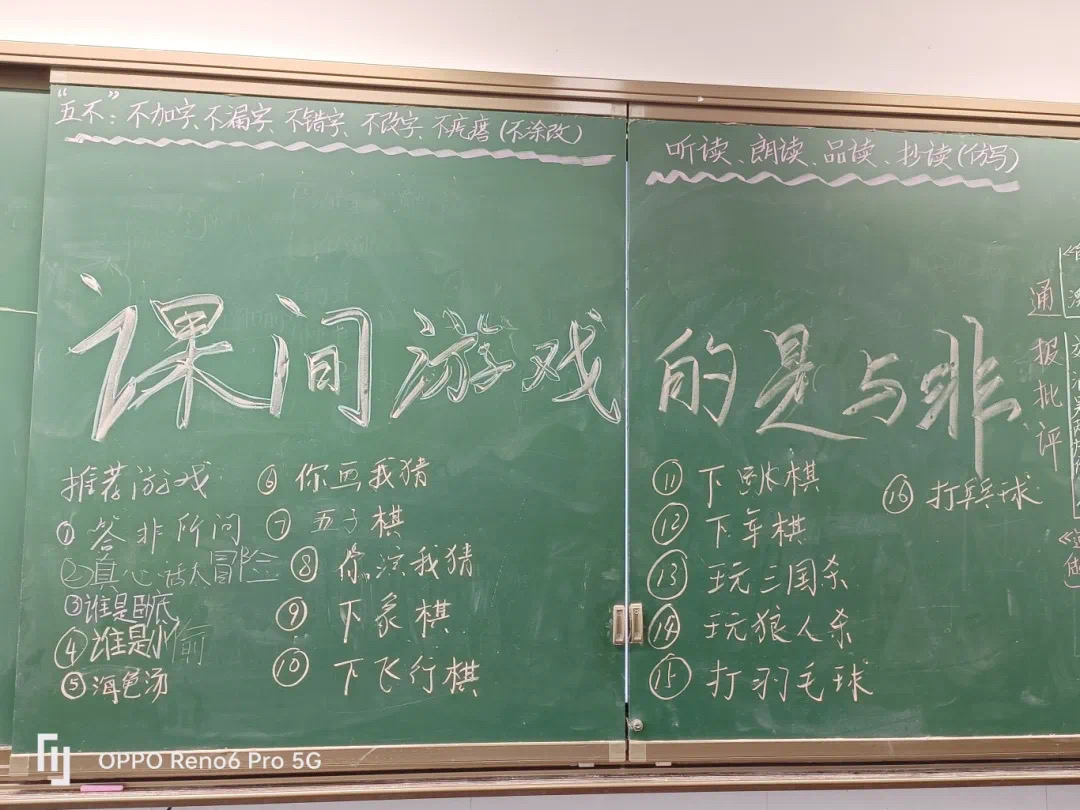 “五不”:不加字、不漏字、不错字、不改字、不疙瘩(不涂改)
听读、朗读、品读、抄读(仿写)
课间游戏的是与非
推荐游戏
①答非所问
②真心话大冒险
③谁是卧底
④谁是小偷
⑤海龟汤
⑥你画我猜
⑦五子棋
⑧你演我猜
⑨下象棋
⑩下飞行棋
⑪下跳棋
⑫下军棋
⑬玩三国杀
⑭玩狼人杀
⑮打羽毛球
⑯打乒乓球
通报批评
OPPO Reno6 Pro 5G